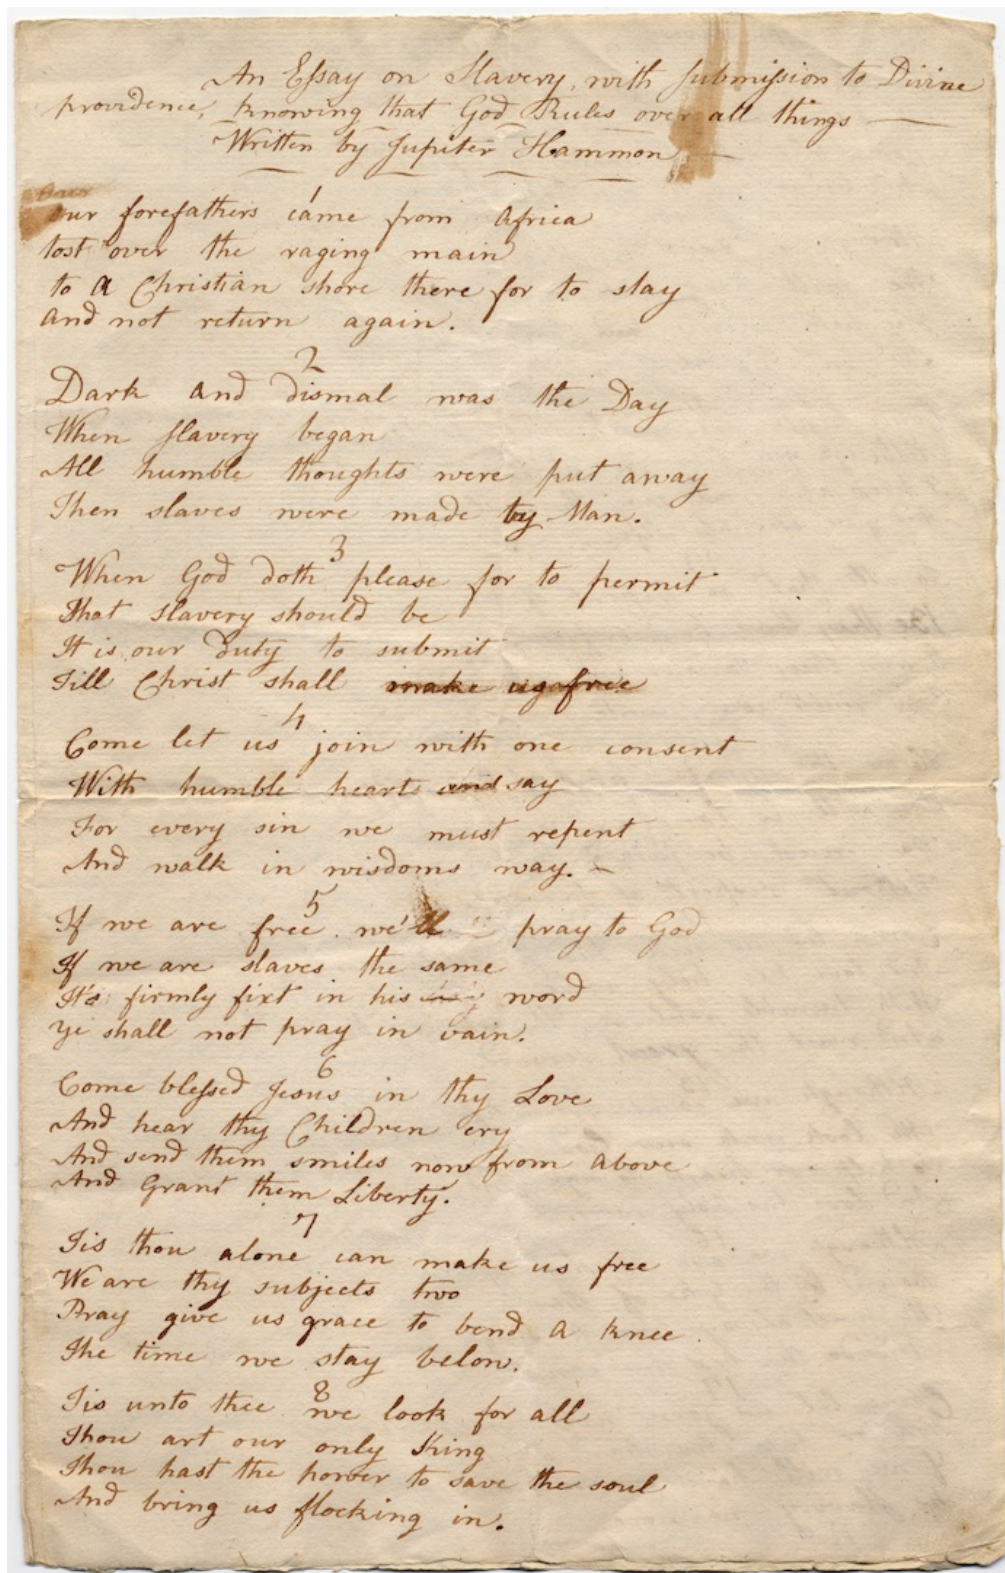 An Essay on Slavery, with submission to Divine
providence, knowing that God Rules over all things —
Written by Jupiter Hammon —
1
Our forefathers came from africa
tost over the raging main
to a Christian shore there for to stay
and not return again.
2
Dark and dismal was the Day
When slavery began
All humble thoughts were put away
Then slaves were made by Man.
3
When God doth please for to permit
That slavery should be
It is our duty to submit
Till Christ shall make us free
4
Come let us join with one consent
With humble hearts and say
For every sin we must repent
And walk in wisdoms way. –
5
If we are free we'll pray to God
If we are slaves the same
It's firmly fixt in his word
Ye shall not pray in vain.
6
Come blessed Jesus in thy Love
And hear thy Children cry
And send them smiles now from above
And Grant them Liberty.
7
Tis thou alone can make us free
We are thy subjects two
Pray give us grace to bend a knee
The time we stay below.
8
Tis unto thee we look for all
Thou art our only King
Thou hast the power to save the soul
And bring us flocking in.